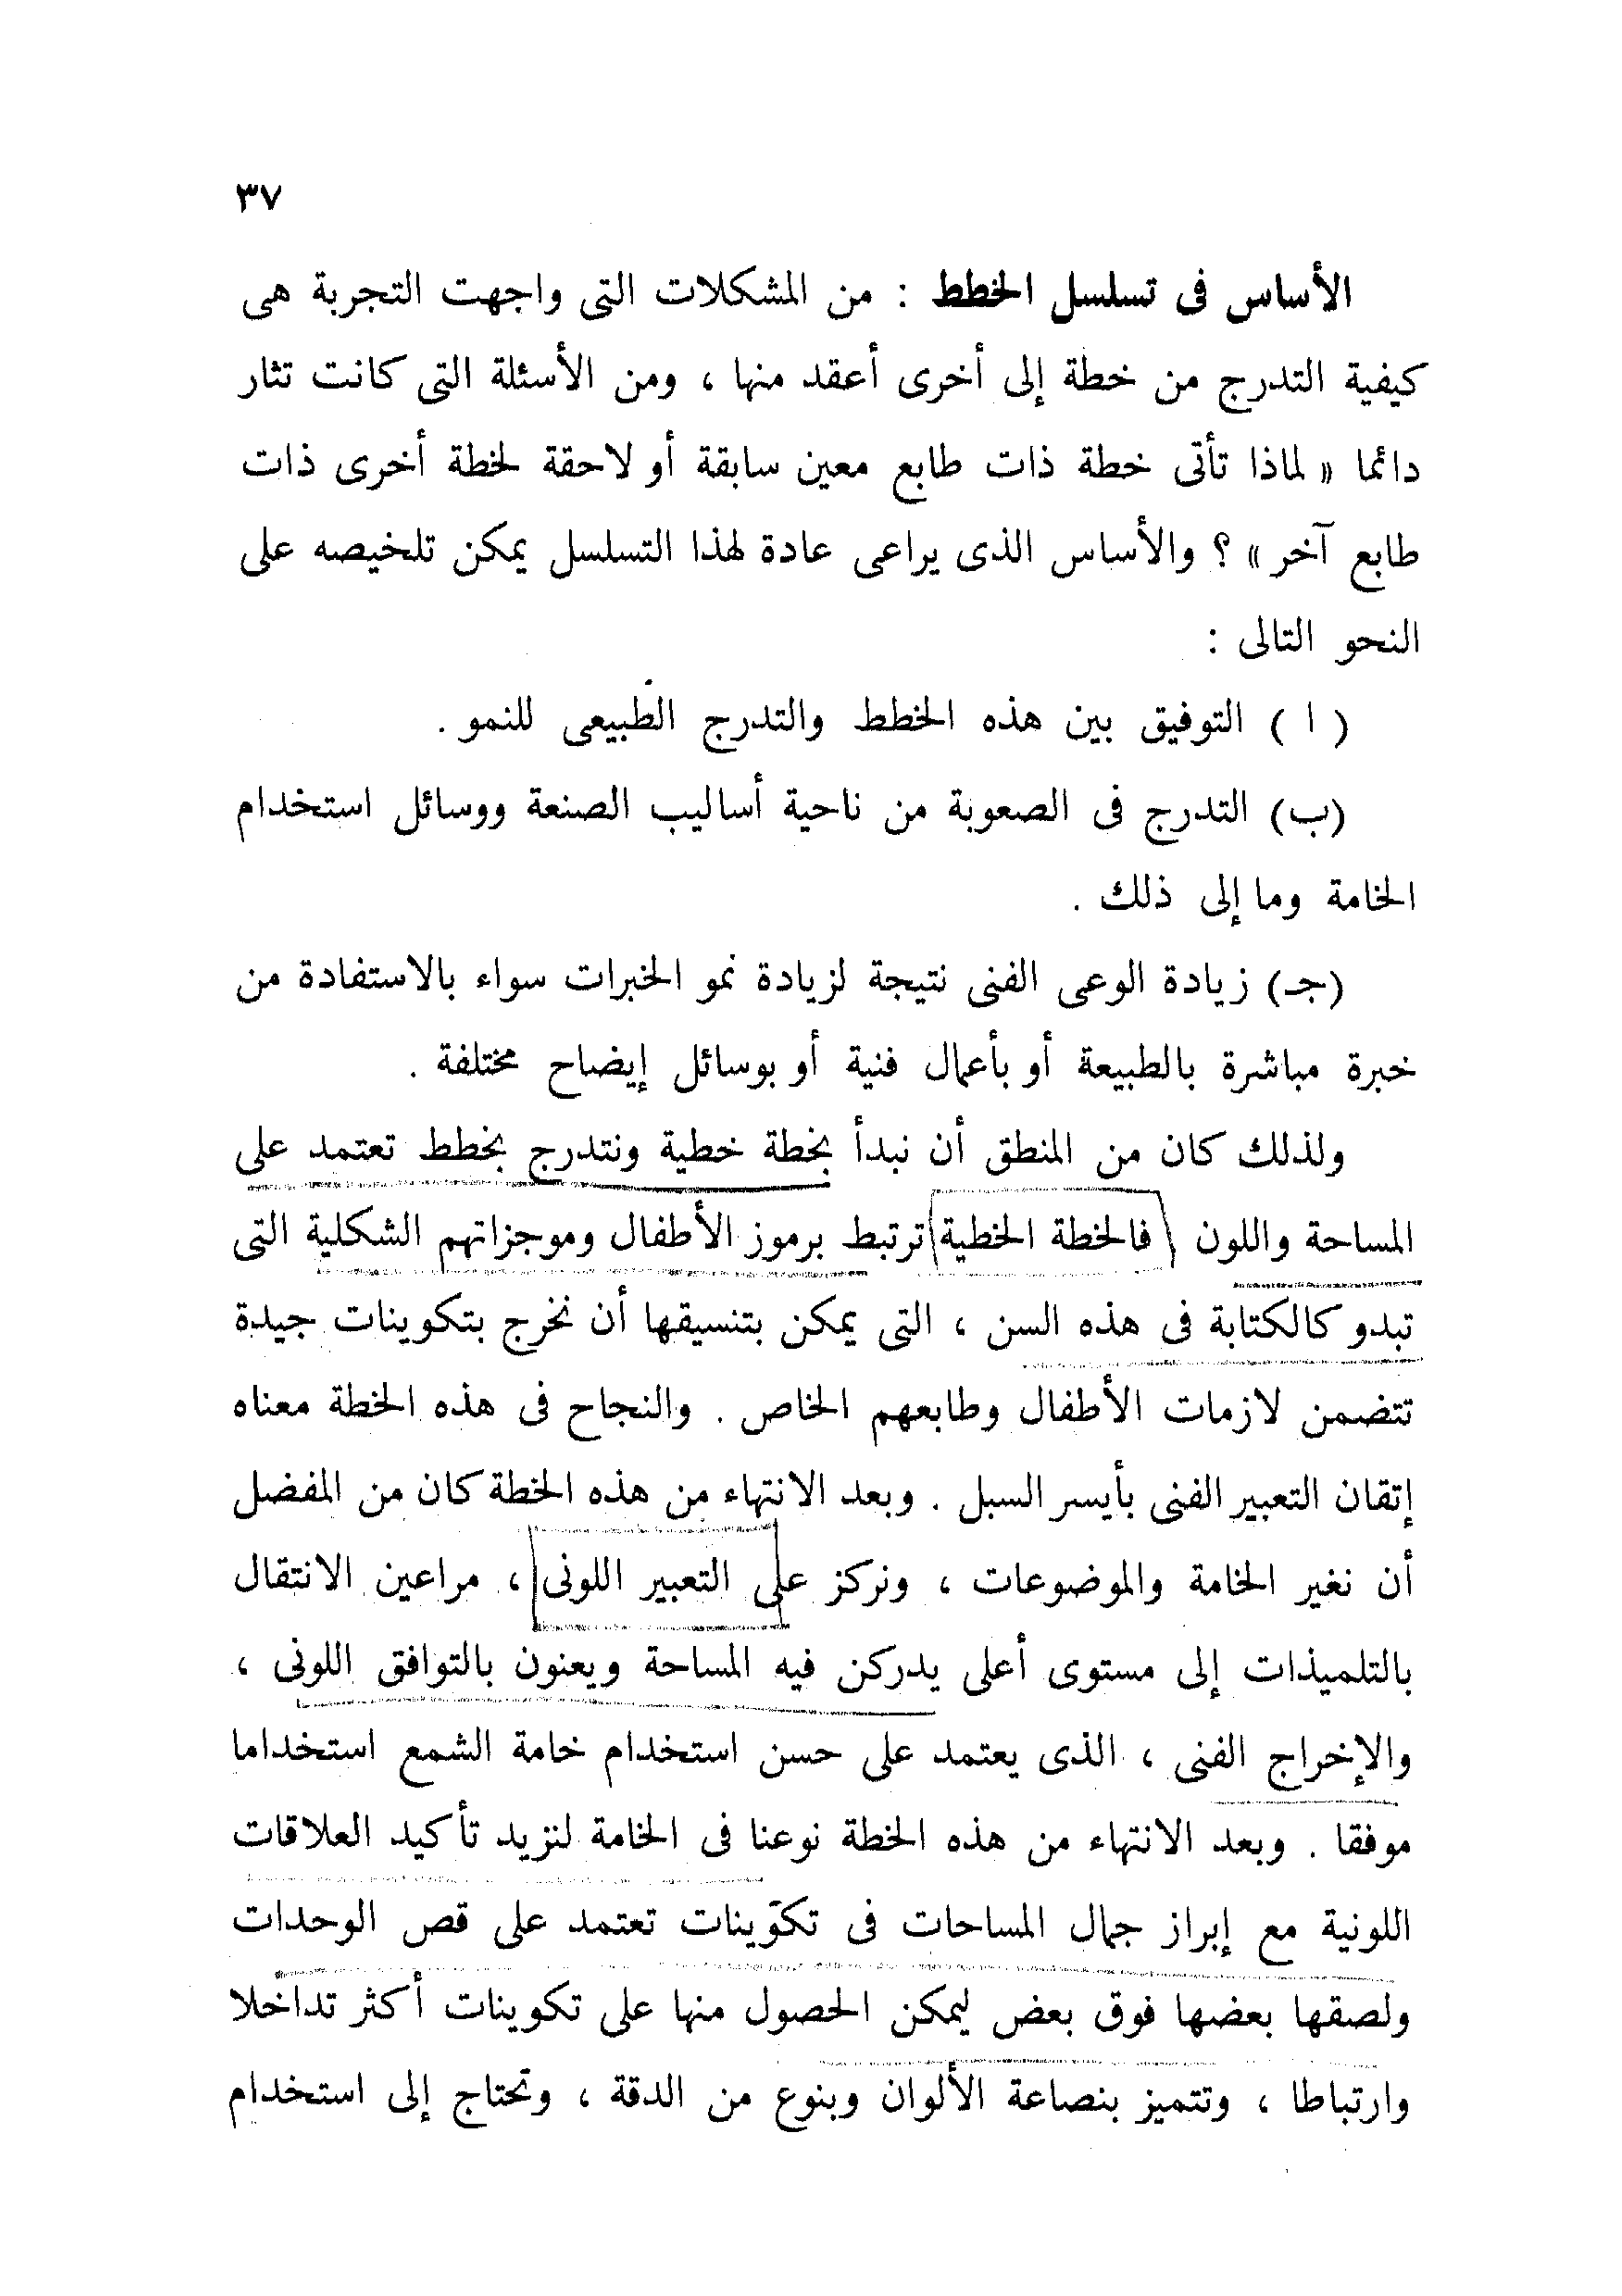 ٣٧
الأساس فى تسلسل الخطط : من المشكلات التى واجهت التجربة هى
كيفية التدرج من خطة إلى أخرى أعقد منها ، ومن الأسئلة التى كانت تثار
دائما « لماذا تأتى خطة ذات طابع معين سابقة أو لاحقة لخطة أخرى ذات
طابع آخر » ؟ والأساس الذى يراعى عادة لهذا التسلسل يمكن تلخيصه على
النحو التالى :
( ا ) التوفيق بين هذه الخطط والتدرج الطبيعى للنمو .
(ب) التدرج فى الصعوبة من ناحية أساليب الصنعة ووسائل استخدام
الخامة وما إلى ذلك .
(جـ) زيادة الوعى الفنى نتيجة لزيادة نمو الخبرات سواء بالاستفادة من
خبرة مباشرة بالطبيعة أو بأعمال فنية أو بوسائل إيضاح مختلفة .
ولذلك كان من المنطق أن نبدأ بخطة خطية ونتدرج بخطط تعتمد على
المساحة واللون فالخطة الخطية ترتبط برموز الأطفال وموجزاتهم الشكلية التى
تبدو كالكتابة فى هذه السن ، التى يمكن بتنسيقها أن نخرج بتكوينات جيدة
تتضمن لازمات الأطفال وطابعهم الخاص . والنجاح فى هذه الخطة معناه
إتقان التعبير الفنى بأيسر السبل . وبعد الانتهاء من هذه الخطة كان من المفضل
أن نغير الخامة والموضوعات ، ونركز على التعبير اللونى ، مراعين الانتقال
بالتلميذات إلى مستوى أعلى يدركن فيه المساحة ويعنون بالتوافق اللونى ،
والإخراج الفنى ، الذى يعتمد على حسن استخدام خامة الشمع استخداما
موفقا . وبعد الانتهاء من هذه الخطة نوعنا فى الخامة لنزيد تأكيد العلاقات
اللونية مع إبراز جمال المساحات فى تكوينات تعتمد على قص الوحدات
ولصقها بعضها فوق بعض ليمكن الحصول منها على تكوينات أكثر تداخلا
وارتباطا ، وتتميز بنصاعة الألوان وبنوع من الدقة ، وتحتاج إلى استخدام